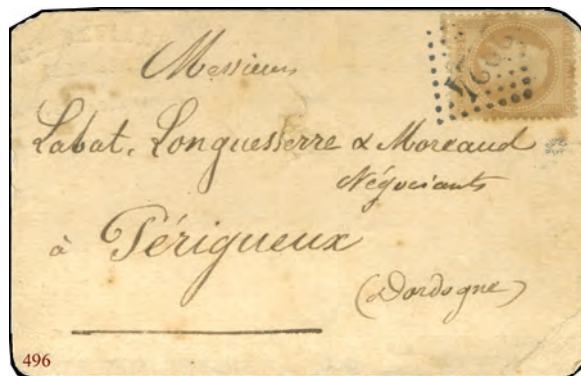 Messieurs
Labat, Longuesserre & Moreaud
Négociants
à Périgueux
(Dordogne)
496